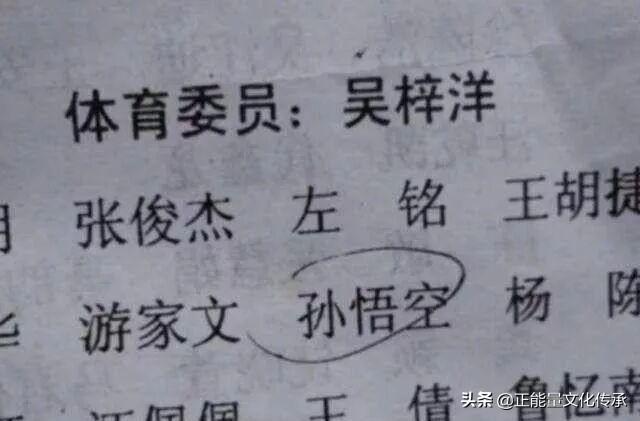 体育委员：吴梓洋
张俊杰 左 铭 王胡捷
游家文 孙悟空 杨 陈
汪佩佩 王 倩 鲁忆南
头条 @正能量文化传承